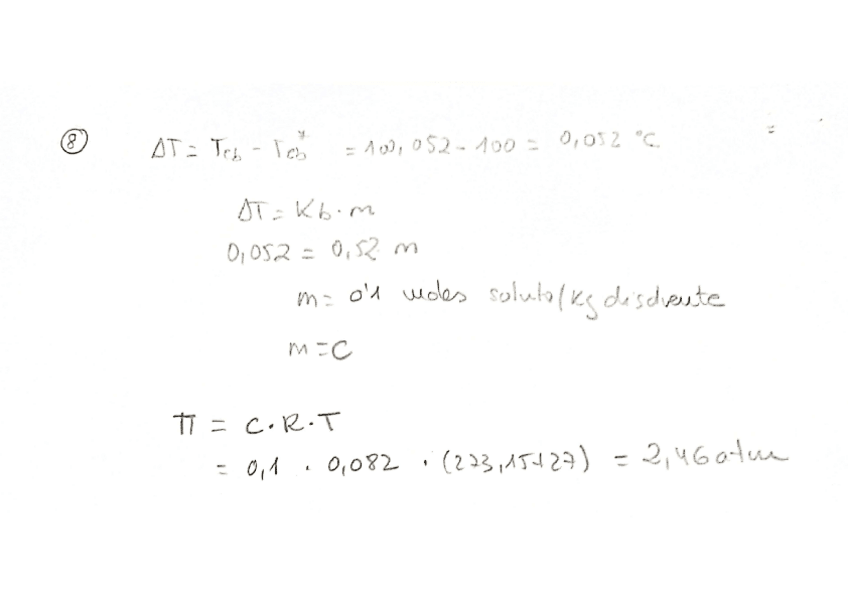 ⑧ ΔT = Teb - Teb* = 100,052 - 100 = 0,052 °C
ΔT = Kb · m
0,052 = 0,52 m
m = 0'1 moles soluto/kg disolvente
m = C
π = C·R·T
= 0,1 · 0,082 · (273,15+27) = 2,46 atm